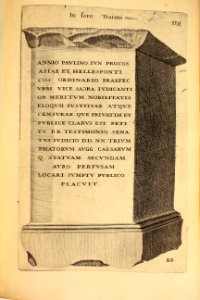 In foro Traiani
119
ANNIO PAVLINO IVN PROCOS
ASIAE ET HELLESPONTI
COS ORDINARIO PRAEFEC
VRBI VICE SACRA IVDICANTI
OB MERITVM NOBILITATIS
ELOQVII IVSTITIAE ATQVE
CENSVRAE QVE PRIVATIM ET
PVBLICE CLARVS EST PETI
TV PR TESTIMONIO SENA
TVS IVDICIO DD NN TRIVM
PHATORVM AVGG CAESARVM
Q STATVAM SECVNDAM
AVRO PERFVSAM
LOCARI SVMPTV PVBLICO
PLACVIT